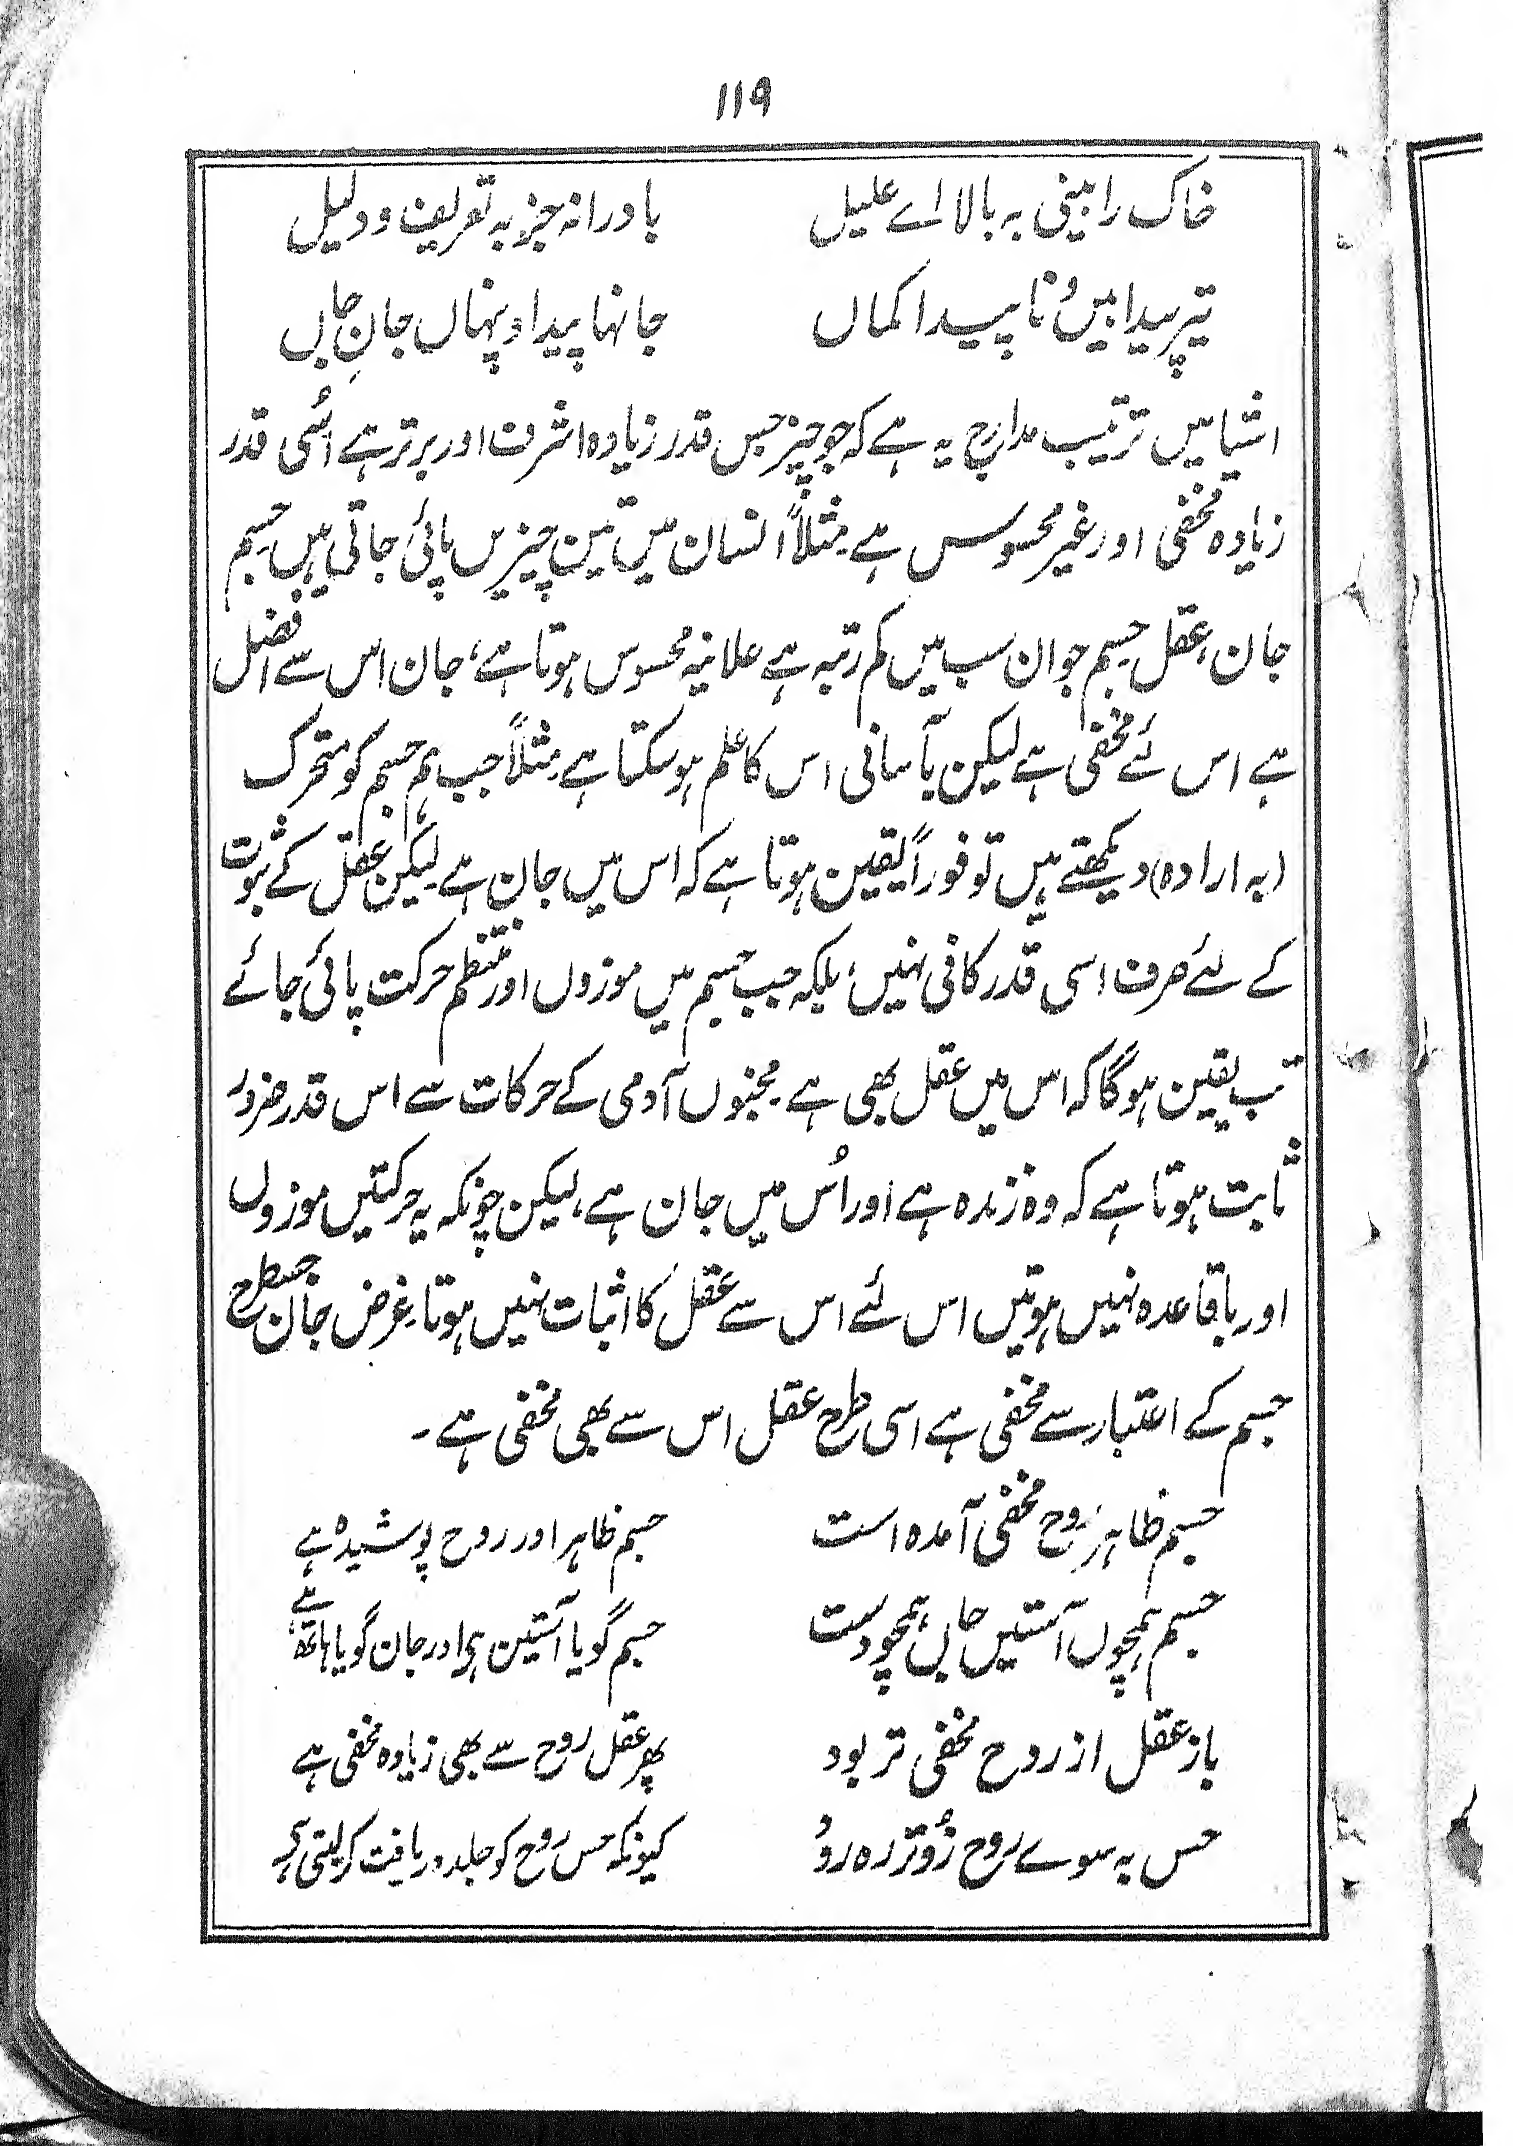 ۱۱۹
خاک را بینی بہ بالا اے علیل باد را نہ جز بہ تعریف و دلیل
تیر پیدا بیں و نا پیدا کماں جانہا پیدا و پنہاں جانِ جاں
اشیا میں ترتیب مدارج یہ ہے کہ جو چیز جس قدر زیادہ اشرف اور برتر ہے اُسی قدر
زیادہ مخفی اور غیر محسوس ہے مثلاً انسان میں تین چیزیں پائی جاتی ہیں، جسم
جان، عقل جسم جو ان سب میں کم رتبہ ہے علانیہ محسوس ہوتا ہے، جان اس سے افضل
ہے اس لئے مخفی ہے لیکن بآسانی اس کا علم ہو سکتا ہے مثلاً جب ہم جسم کو متحرک
(بہ ارادہ) دیکھتے ہیں تو فوراً یقین ہوتا ہے کہ اس میں جان ہے لیکن عقل کے ثبوت
کے لئے صرف اسی قدر کافی نہیں، بلکہ جب جسم میں موزوں اور منتظم حرکت پائی جائے
تب یقین ہوگا کہ اس میں عقل بھی ہے۔ مجنوں آدمی کے حرکات سے اس قدر ضرور
ثابت ہوتا ہے کہ وہ زندہ ہے اور اُس میں جان ہے، لیکن چونکہ یہ حرکتیں موزوں
اور باقاعدہ نہیں ہوتیں اس لئے اس سے عقل کا اثبات نہیں ہوتا غرض جان جسطرح
جسم کے اعتبار سے مخفی ہے اسی طرح عقل اس سے بھی مخفی ہے۔
جسم ظاہر روح مخفی آمدہ است جسم ظاہر اور روح پوشیدہ ہے
جسم ہمچوں آستیں جاں ہمچو دست جسم گویا آستین ہی اور جان گویا ہاتھ ہے
باز عقل از روح مخفی تر بود پھر عقل روح سے بھی زیادہ مخفی ہے
حس بہ سوے روح زُو تر رہ رود کیونکہ حس روح کو جلد دریافت کر لیتی ہی